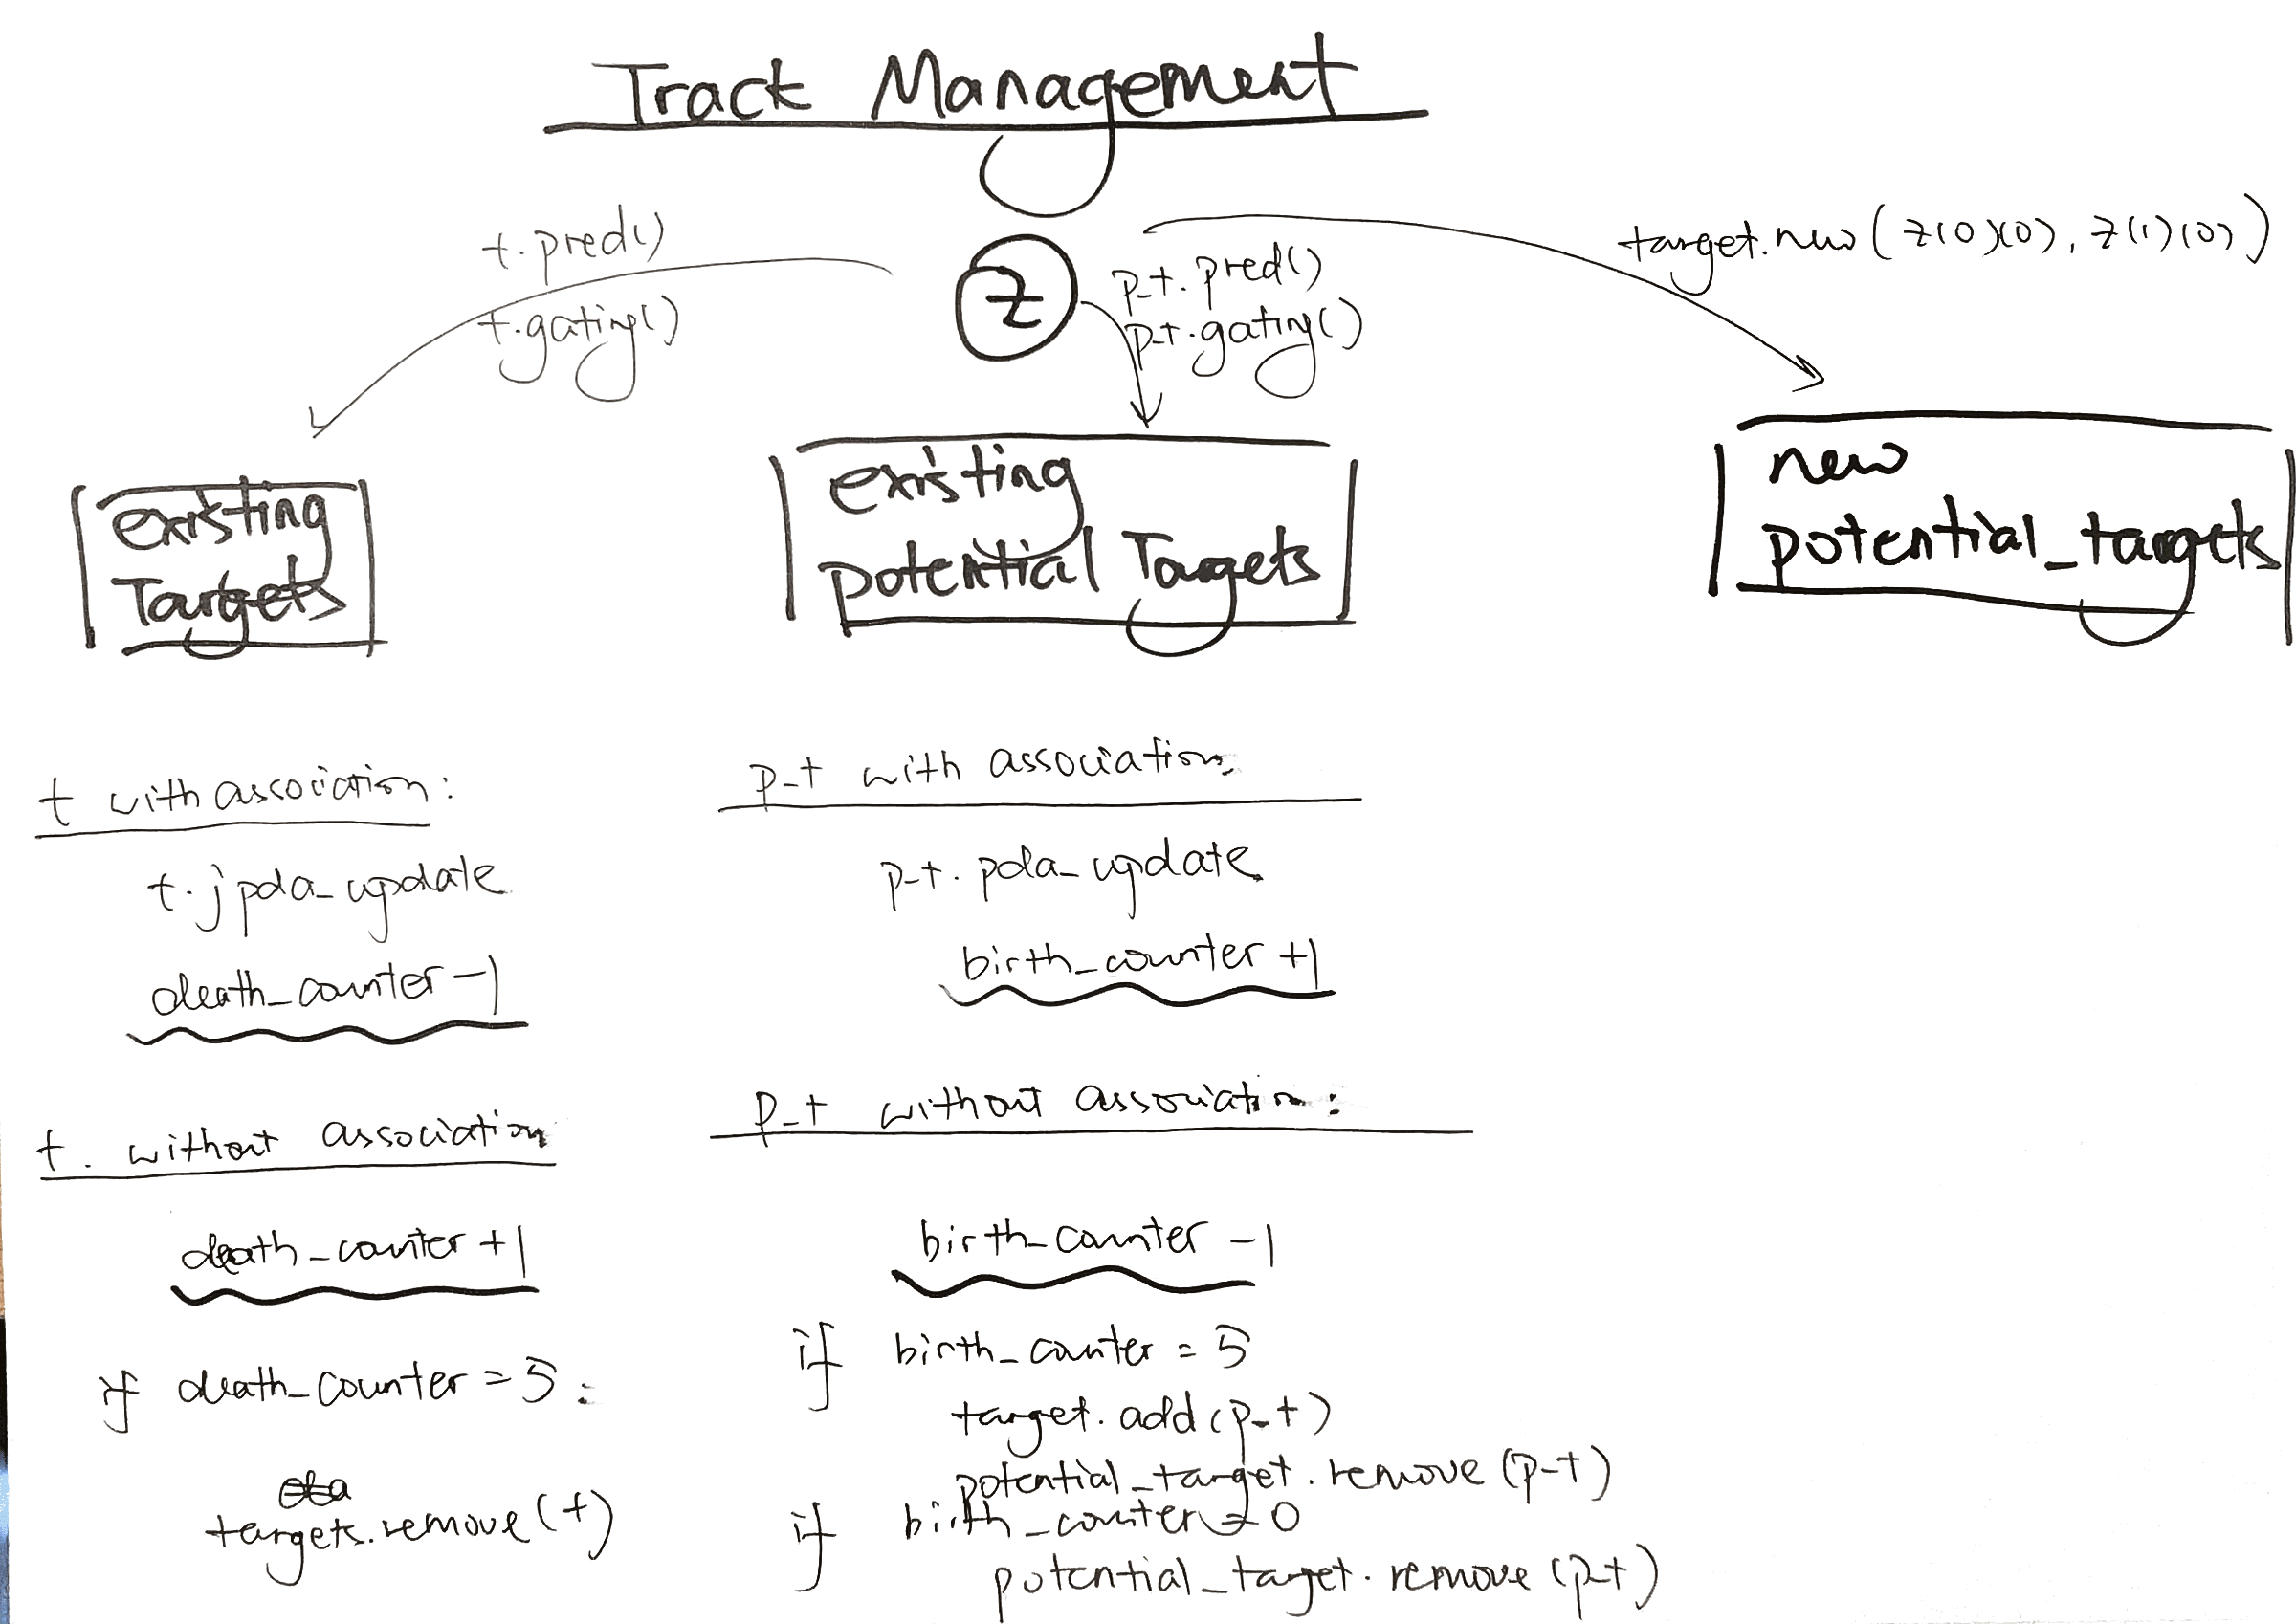 Track Management
t.pred()
t.gating()
z
p_t.pred()
p_t.gating()
target.new(z(0)(0), z(1)(0))
existing
Targets
existing
potential Targets
new
potential_targets
t with association:
t.jpda_update
death_counter -1
t. without association
death_counter +1
if death_counter = 5:
targets.remove(t)
p_t with association:
p_t.pda_update
birth_counter +1
p_t without association:
birth_counter -1
if birth_counter = 5
target.add(p_t)
potential_target.remove(p_t)
if birth_counter = 0
potential_target.remove(p_t)